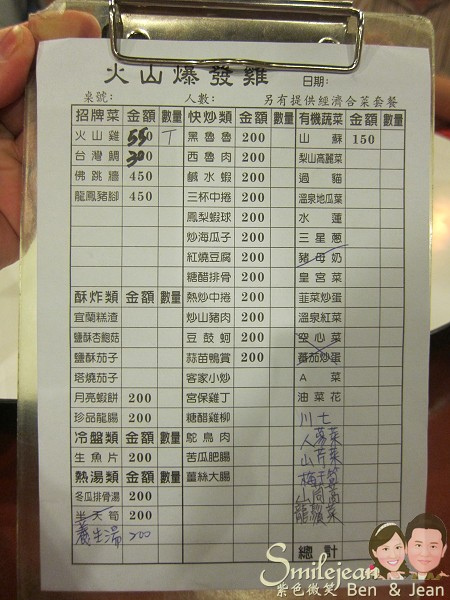 火山爆發雞 日期:
桌號: 人數: 另有提供經濟合菜套餐
招牌菜 金額 數量 快炒類 金額 數量 有機蔬菜 金額 數量
火山雞 550 黑魯魯 200 山蘇 150
台灣鯛 300 西魯肉 200 梨山高麗菜
佛跳牆 450 鹹水蝦 200 過貓
龍鳳豬腳 450 三杯中捲 200 溫泉地瓜葉
鳳梨蝦球 200 水蓮
炒海瓜子 200 三星蔥
紅燒豆腐 200 豬母奶
糖醋排骨 200 皇宮菜
酥炸類 金額 數量 熱炒中捲 200 韭菜炒蛋
宜蘭糕渣 炒山豬肉 200 溫泉紅菜
鹽酥杏鮑菇 豆鼓蚵 200 空心菜
鹽酥茄子 蒜苗鴨賞 200 蕃茄炒蛋
塔燒茄子 客家小炒 A菜
月亮蝦餅 200 宮保雞丁 油菜花
珍品龍腸 200 糖醋雞柳 川七
冷盤類 金額 數量 鴕鳥肉 人蔘菜
生魚片 200 苦瓜肥腸 山芹菜
熱湯類 金額 數量 薑絲大腸
冬瓜排骨湯 200 山茼蒿
半天筍 200 龍鬚菜
養生湯 200 總計
Smilejean
紫色微笑 Ben & Jean